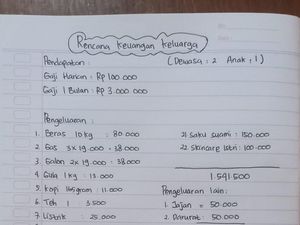 Rencana keuangan keluarga
Pendapatan :
(Dewasa : 2 Anak : 1)
Gaji Harian : Rp 100.000
Gaji 1 Bulan : Rp 3.000.000
Pengeluaran :
1. Beras 10 kg : 80.000
2. Gas 3 x 19.000 = 38.000
3. Galon 2 x 19.000 = 38.000
4. Gula 1 kg : 13.000
5. Kopi 165 gram : 11.000
6. Teh 1 : 3.500
7. Listrik : 25.000
21. Saku suami : 150.000
22. Skincare Istri : 100.000
1.591.500
Pengeluaran lain :
1. Jajan = 50.000
2. Darurat : 50.000